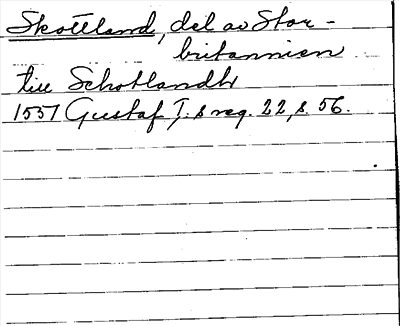 Skottland, del av Stor-
britannien
till Schotlandh
1557 Gustaf I:s reg. 22, s. 56.